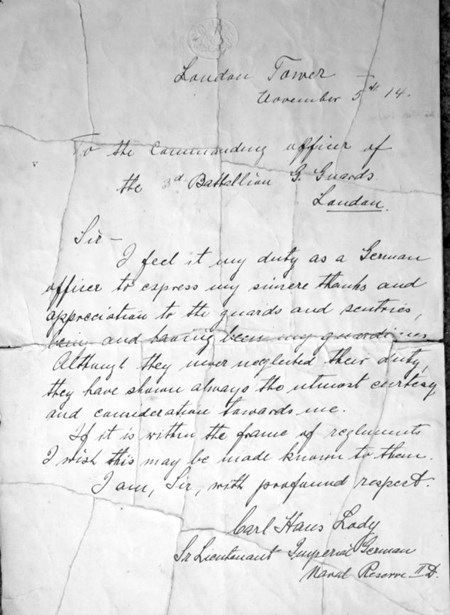 London Tower
November 5th 14.
To the Commanding officer of
the 3d Battallion G. Guards
London.
Sir –
I feel it my duty as a German
officer to express my sincere thanks and
appreciation to the guards and sentries,
being and having been my guardians
Although they never neglected their duty,
they have shown always the utmost courtesy
and consideration towards me.
If it is within the frame of regluments
I wish this may be made known to them.
I am, Sir, with profound respect.
Carl Hans Lody
Sr Lieutenant Imperial German
Naval Reserve II D.